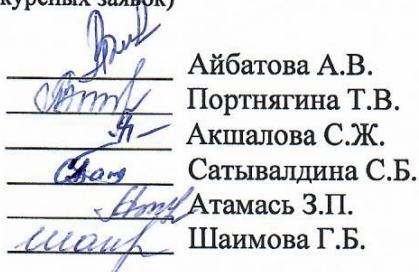 курсных заявок)
Айбатова А.В.
Портнягина Т.В.
Акшалова С.Ж.
Сатывалдина С.Б.
Атамась З.П.
Шаимова Г.Б.